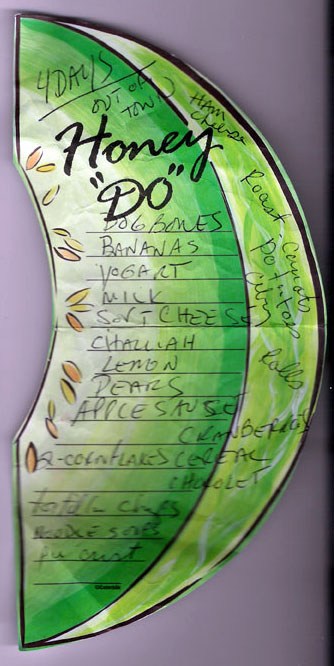 4 DAYS
OUT OF
TOWN
Honey
"DO"
DOG BONES
BANANAS
YOGART
MILK
SOFT CHEESE
CHALLAH
LEMON
PEARS
APPLE SAUSE
CRANBERRIES
2-CORNFLAKES CEREAL
CHOCOLET
tortilla chips
NOODLE SOUPS
pie crust
HAM
Cheese
Roast Carrots
Potatoes
Rolls